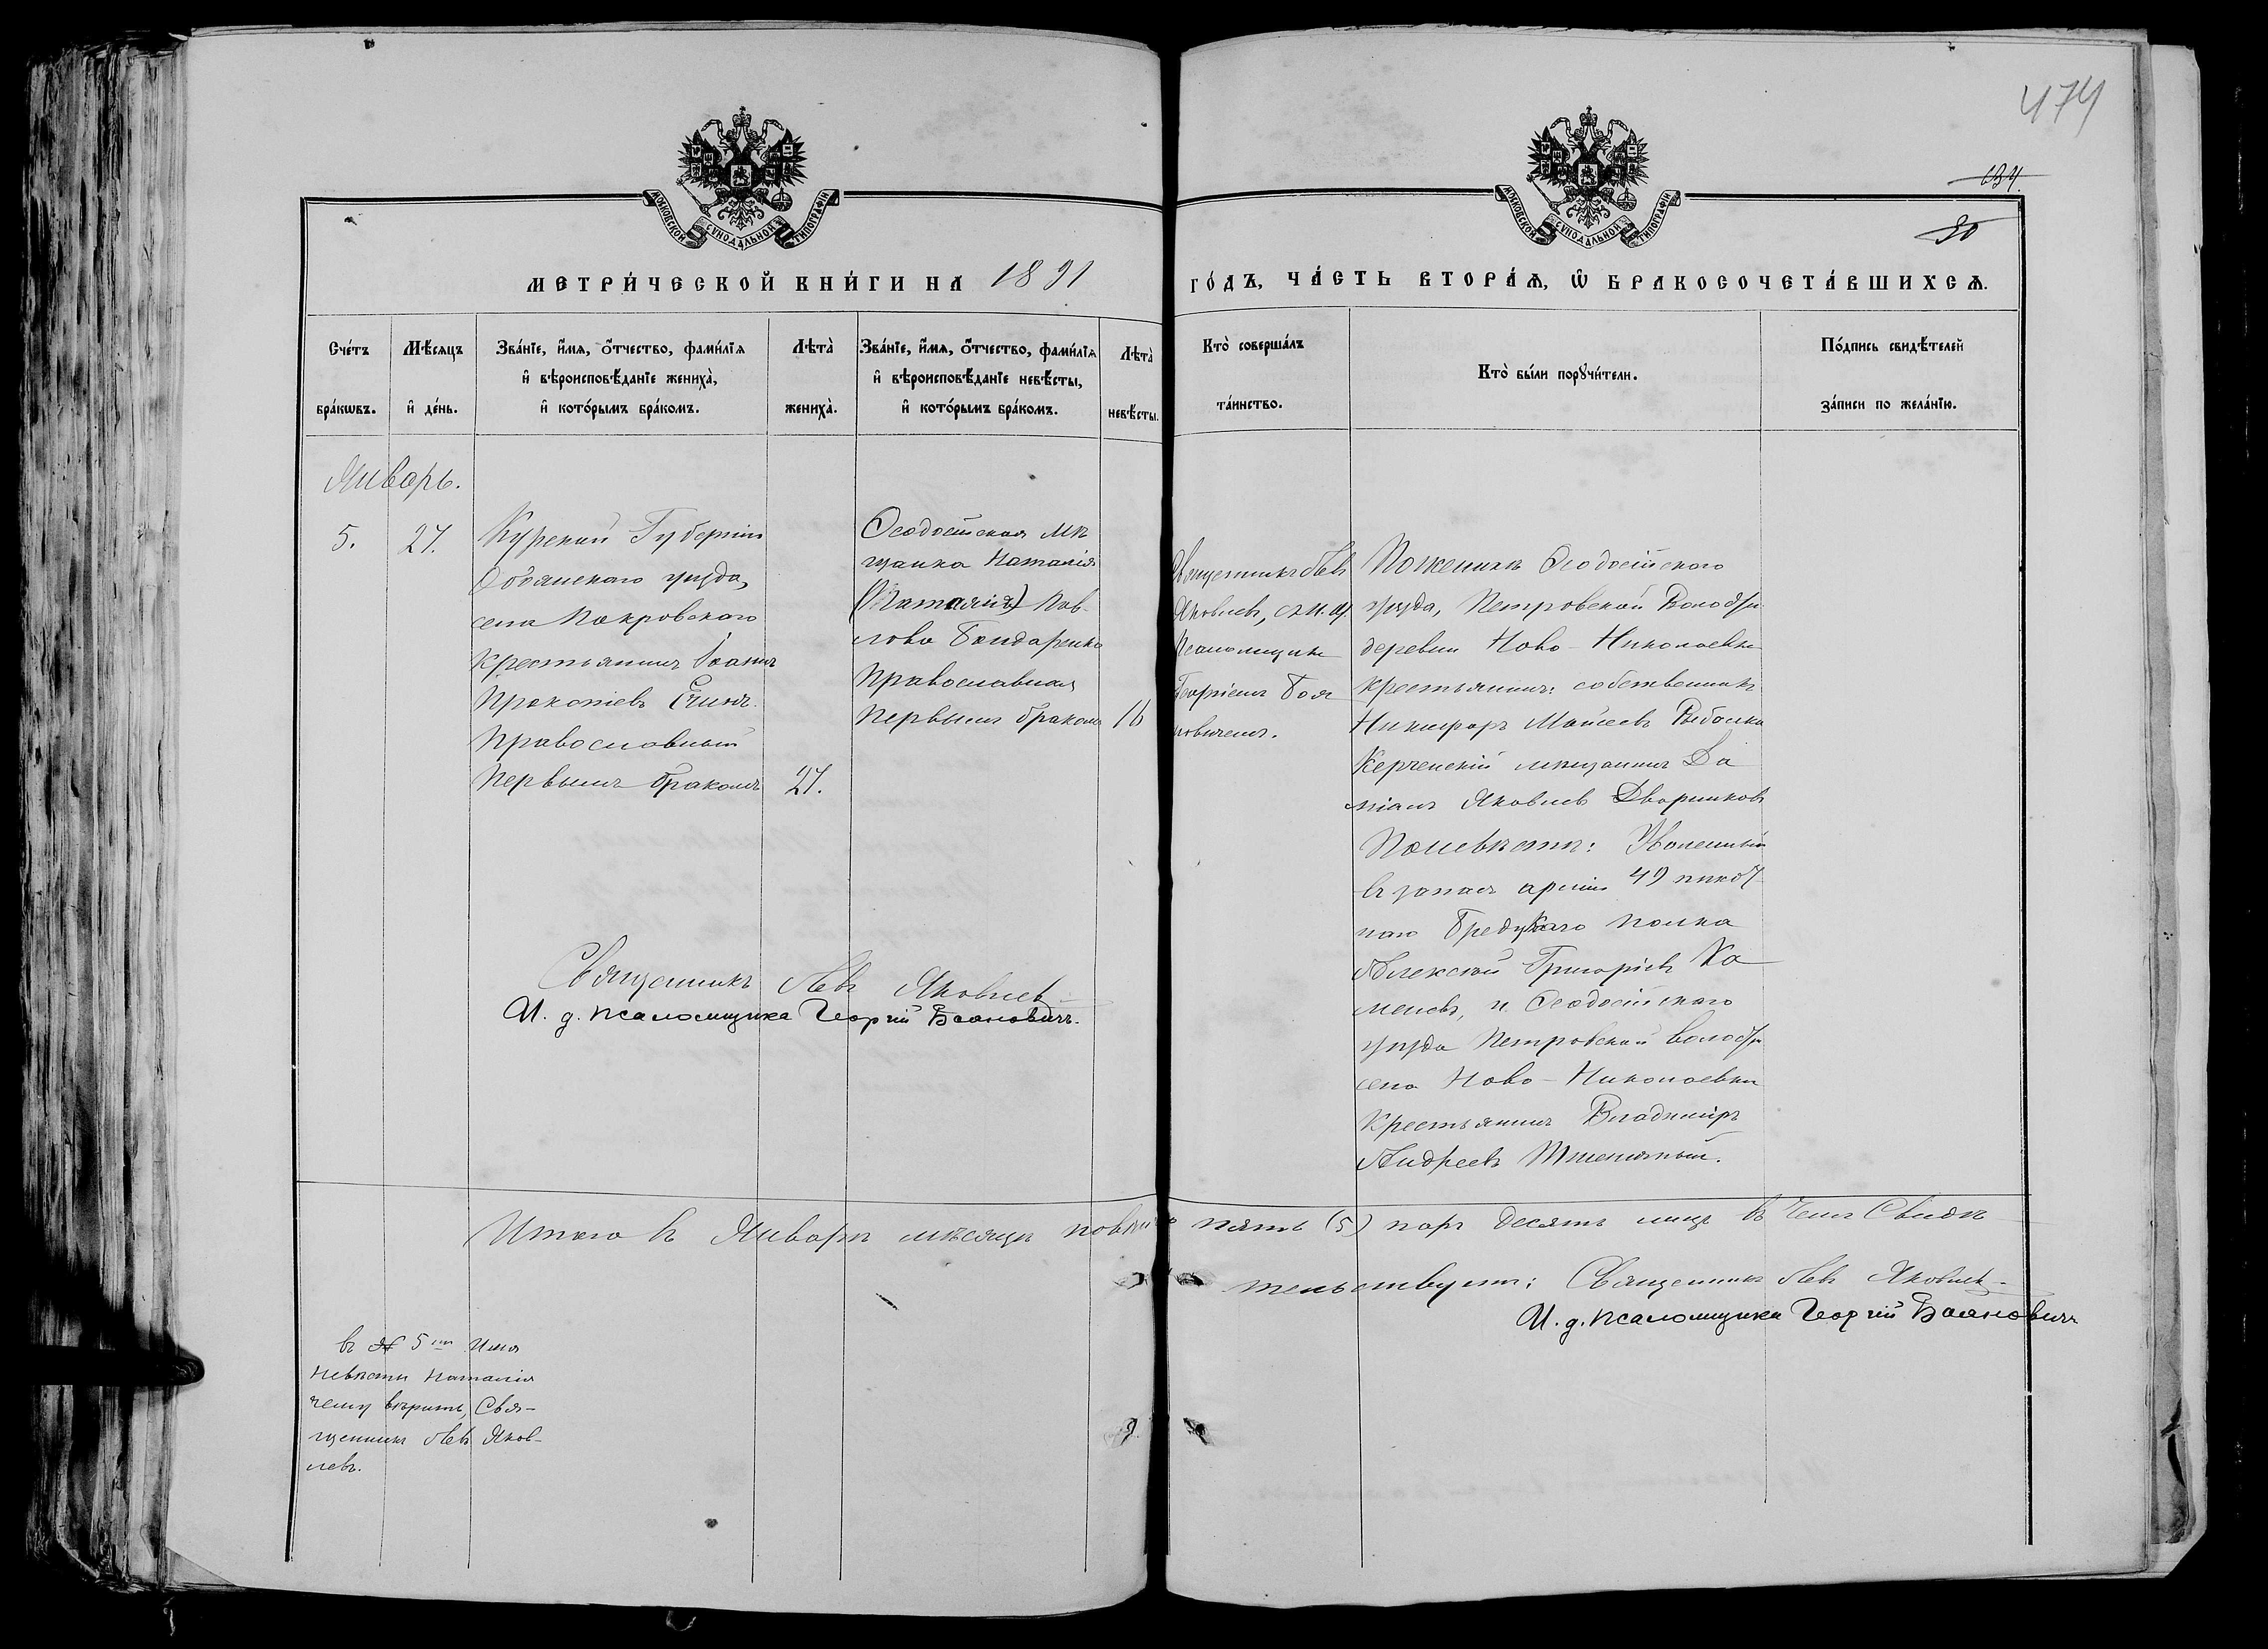 474
134.
30
МОСКОВСКОЙ СѴНОДАЛЬНОЙ ТИПОГРАФІИ
МОСКОВСКОЙ СѴНОДАЛЬНОЙ ТИПОГРАФІИ
МЕТРИ́ЧЕСКОЙ КНИ́ГИ НА 1891
ГО́ДЪ, ЧА́СТЬ ВТОРА́Ѧ, Ѽ БРАКОСОЧЕТА́ВШИХСѦ.
Сче́тъ бра́кѡвъ.
Мѣ́сяцъ и҆ де́нь.
Зва́нїе, и҆́мѧ, о҆́тчество, фами́лїѧ
и҆ вѣроисповѣ́данїе жениха̀,
и҆ кото́рымъ бра́комъ.
Лѣта̀ жениха̀.
Зва́нїе, и҆́мѧ, о҆́тчество, фами́лїѧ
и҆ вѣроисповѣ́данїе невѣ́сты,
и҆ кото́рымъ бра́комъ.
Лѣта̀ невѣ́сты.
Кто̀ соверша́лъ
та́инство.
Кто̀ бы́ли порꙋчи́тели.
По́дпись свидѣ́телей
за́писи по жела́нїю.
Январь.
5.
27.
Курской Губерніи
Обоянскаго уѣзда,
села Покровскаго
крестьянинъ Іоаннъ
Прокопіевъ
Православный
первымъ бракомъ
27.
Ѳеодосійская мѣ
щанка Наталія
(Наталія) Пав-
лова Бондаренко
Православная
первымъ бракомъ
16
Священникъ Левъ
Яковлевъ, съ и. д.
Псаломщика
Георгіемъ Боя
новичемъ.
По женихѣ Ѳеодосійского
уѣзда, Петровской Волости
деревни Ново-Николаевки
крестьянинъ собственникъ
Никифоръ Моисеевъ Рыбалка
Керченскій мѣщанинъ Да
міанъ Яковлевъ Дворниковъ
По невѣстѣ: Уволенный
въ запасъ арміи 49 пѣхот
наго Брестскаго полка
Алексѣй Григорьевъ Ка
меневъ, и Ѳеодосійскаго
уѣзда Петровской волости
села Ново-Николаевки
Крестьянинъ Владиміръ
Андреевъ Пшеничный.
Священникъ Левъ Яковлевъ
И. д. псаломщика Георгій Бояновичъ.
Итого въ Январѣ мѣсяцѣ повѣнчано пять (5) паръ десять лицъ въ чемъ Свидѣ
тельствуютъ: Священникъ Левъ Яковлевъ
И. д. псаломщика Георгій Бояновичъ
въ № 5мъ Имя
Невѣсты Наталія
чему вѣрить, Свя-
щенникъ Левъ Яков-
левъ.